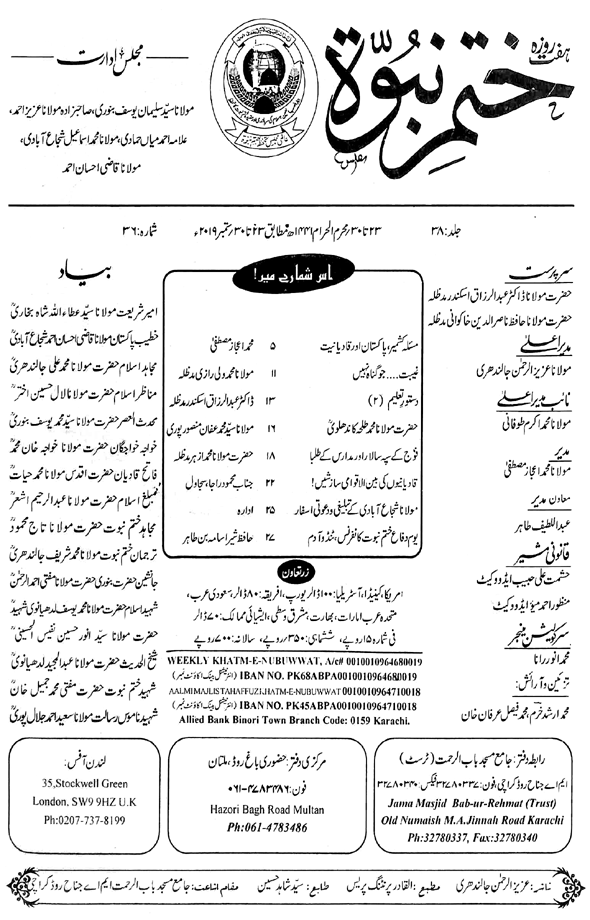 ہفت روزہ
ختم نبوۃ
مجلس ادارت
مولانا سید سلیمان یوسف بنوری، صاحبزادہ مولانا عزیز احمد،
علامہ احمد میاں حمادی، مولانا محمد اسماعیل شجاع آبادی،
مولانا قاضی احسان احمد
جلد: ۳۸
۲۳ تا ۳۰ محرم الحرام ۱۴۴۱ھ مطابق ۲۳ تا ۳۰ ستمبر ۲۰۱۹ء
شمارہ: ۳۶
سرپرست
حضرت مولانا ڈاکٹر عبدالرزاق اسکندر مدظلہ
حضرت مولانا حافظ ناصر الدین خاکوانی مدظلہ
مدیر اعلیٰ
مولانا عزیز الرحمٰن جالندھری
نائب مدیر اعلیٰ
مولانا محمد اکرم طوفانی
مدیر
مولانا محمد اعجاز مصطفیٰ
معاون مدیر
عبداللطیف طاہر
قانونی مشیر
حشمت علی حبیب ایڈووکیٹ
منظور احمد میؤ ایڈووکیٹ
سرکولیشن منیجر
محمد انور رانا
تزئین و آرائش:
محمد ارشد خرم، محمد فیصل عرفان خان
اس شمارے میں!
مسئلہ کشمیر، پاکستان اور قادیانیت ۵ محمد اعجاز مصطفیٰ
غیبت.... جو گناہ نہیں ۱۱ مولانا محمد ولی رازی مدظلہ
دستور تعلیم (۲) ۱۳ ڈاکٹر عبدالرزاق اسکندر مدظلہ
حضرت مولانا محمد طلحہ کاندھلویؒ ۱۶ مولانا سید محمد عفان منصور پوری
فوج کے سپہ سالار اور مدارس کے طلبا ۱۸ حضرت مولانا محمد ازہر مدظلہ
قادیانیوں کی بین الاقوامی سازشیں! ۲۲ جناب محمود راجا، سجاول
مولانا شجاع آبادی کے تبلیغی و دعوتی اسفار ۲۵ ادارہ
یوم دفاع ختم نبوت کانفرنس، ٹنڈو آدم ۲۷ حافظ شیراسامہ بن طاہر
زرتعاون
امریکا، کینیڈا، آسٹریلیا: ۱۰۰ ڈالر یورپ، افریقہ: ۸۰ ڈالر، سعودی عرب،
متحدہ عرب امارات، بھارت، مشرق وسطیٰ، ایشیائی ممالک: ۷۰ ڈالر
فی شمارہ ۱۵ روپے، ششماہی: ۳۵۰ روپے، سالانہ: ۷۰۰ روپے
WEEKLY KHATM-E-NUBUWWAT, A/c# 0010010964680019
(انٹرنیشنل بینک اکاؤنٹ نمبر) IBAN NO. PK68ABPA0010010964680019
AALMIMAJLISTAHAFFUZKHATM-E-NUBUWWAT 0010010964710018
(انٹرنیشنل بینک اکاؤنٹ نمبر) IBAN NO. PK45ABPA0010010964710018
Allied Bank Binori Town Branch Code: 0159 Karachi.
بیاد
امیر شریعت مولانا سید عطاء اللہ شاہ بخاریؒ
خطیب پاکستان مولانا قاضی احسان احمد شجاع آبادیؒ
مجاہد اسلام حضرت مولانا محمد علی جالندھریؒ
مناظر اسلام حضرت مولانا لال حسین اخترؒ
محدث العصر حضرت مولانا سید محمد یوسف بنوریؒ
خواجہ خواجگان حضرت مولانا خواجہ خان محمدؒ
فاتح قادیان حضرت اقدس مولانا محمد حیاتؒ
مبلغ اسلام حضرت مولانا عبدالرحیم اشعرؒ
مجاہد ختم نبوت حضرت مولانا تاج محمودؒ
ترجمان ختم نبوت حضرت مولانا محمد شریف جالندھریؒ
جانشین حضرت بنوری حضرت مولانا مفتی احمد الرحمٰنؒ
شہید اسلام حضرت مولانا محمد یوسف لدھیانوی شہیدؒ
حضرت مولانا سید انور حسین نفیس الحسینیؒ
شیخ الحدیث حضرت مولانا عبدالمجید لدھیانویؒ
شہید ختم نبوت حضرت مفتی محمد جمیل خانؒ
شہید ناموس رسالت مولانا سعید احمد جلال پوریؒ
رابطہ دفتر: جامع مسجد باب الرحمت (ٹرسٹ)
ایم اے جناح روڈ کراچی، فون: ۳۲۷۸۰۳۳۷ فیکس: ۳۲۷۸۰۳۴۰
Jama Masjid Bab-ur-Rehmat (Trust)
Old Numaish M.A.Jinnah Road Karachi
Ph:32780337, Fax:32780340
مرکزی دفتر: حضوری باغ روڈ، ملتان
فون: ۰۶۱-۴۷۸۳۴۸۶
Hazori Bagh Road Multan
Ph:061-4783486
لندن آفس:
35,Stockwell Green
London, SW9 9HZ U.K
Ph:0207-737-8199
ناشر: عزیز الرحمٰن جالندھری مطبع: القادر پرنٹنگ پریس طابع: سید شاہد حسین مقام اشاعت: جامع مسجد باب الرحمت ایم اے جناح روڈ کراچی